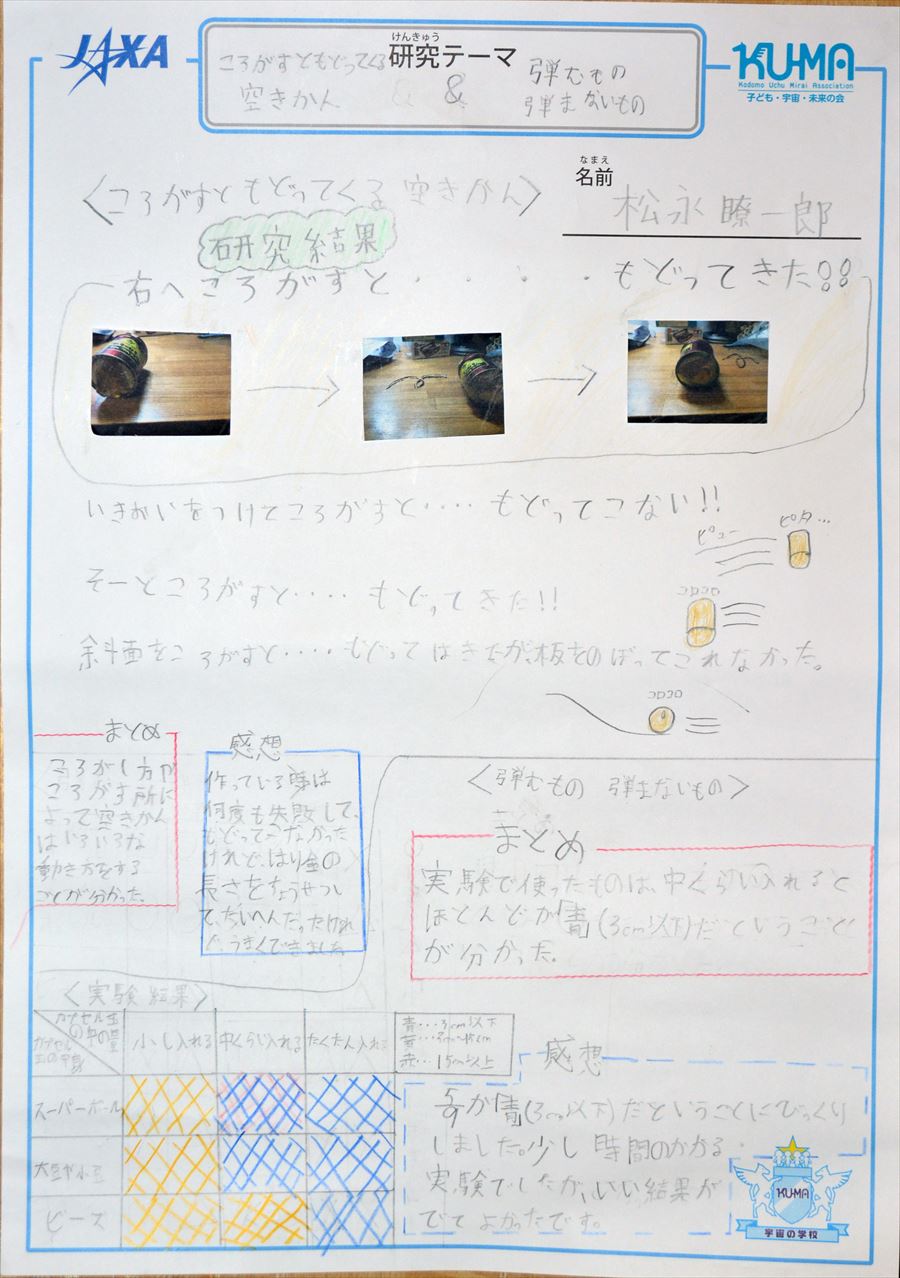 JAXA
けんきゅう
研究テーマ
ころがすともどってくる
空きかん
&
弾むもの
弾まないもの
KU-MA
Kodomo Uchu Mirai Association
子ども・宇宙・未来の会
なまえ
名前
松永 瞭一郎
〈ころがすともどってくる空きかん〉
研究結果
右へころがすと・・・・・もどってきた!!
いきおいをつけてころがすと・・・・もどってこない!!
ピュー
ピタ…
そーところがすと・・・・もどってきた!!
コロコロ
斜面をころがすと・・・・もどってはきたが、板をのぼってこれなかった。
コロコロ
まとめ
ころがし方や
ころがす所に
よって空きかん
はいろいろな
動き方をする
ことが分かった。
感想
作っている時は
何度も失敗して、
もどってこなかった
けれど、はり金の
長さをちょうせつし
て、たいへんだったけれ
ど、うまくできました
〈弾むもの 弾まないもの〉
まとめ
実験で使ったものは、中くらい入れると
ほとんどが「青」(3cm以下)だということ
が分かった。
〈実験結果〉
カプセル玉の中の量
カプセル玉の中身
小し入れる
中くらい入れる
たくさん入れる
青…3cm以下
黄…3cm~15cm
赤…15cm以上
スーパーボール
大豆や小豆
ビーズ
感想
5/9が「青」(3cm以下)だということにびっくり
しました。少し時間のかかる
実験でしたが、いい結果が
でてよかったです。
KU-MA
宇宙の学校